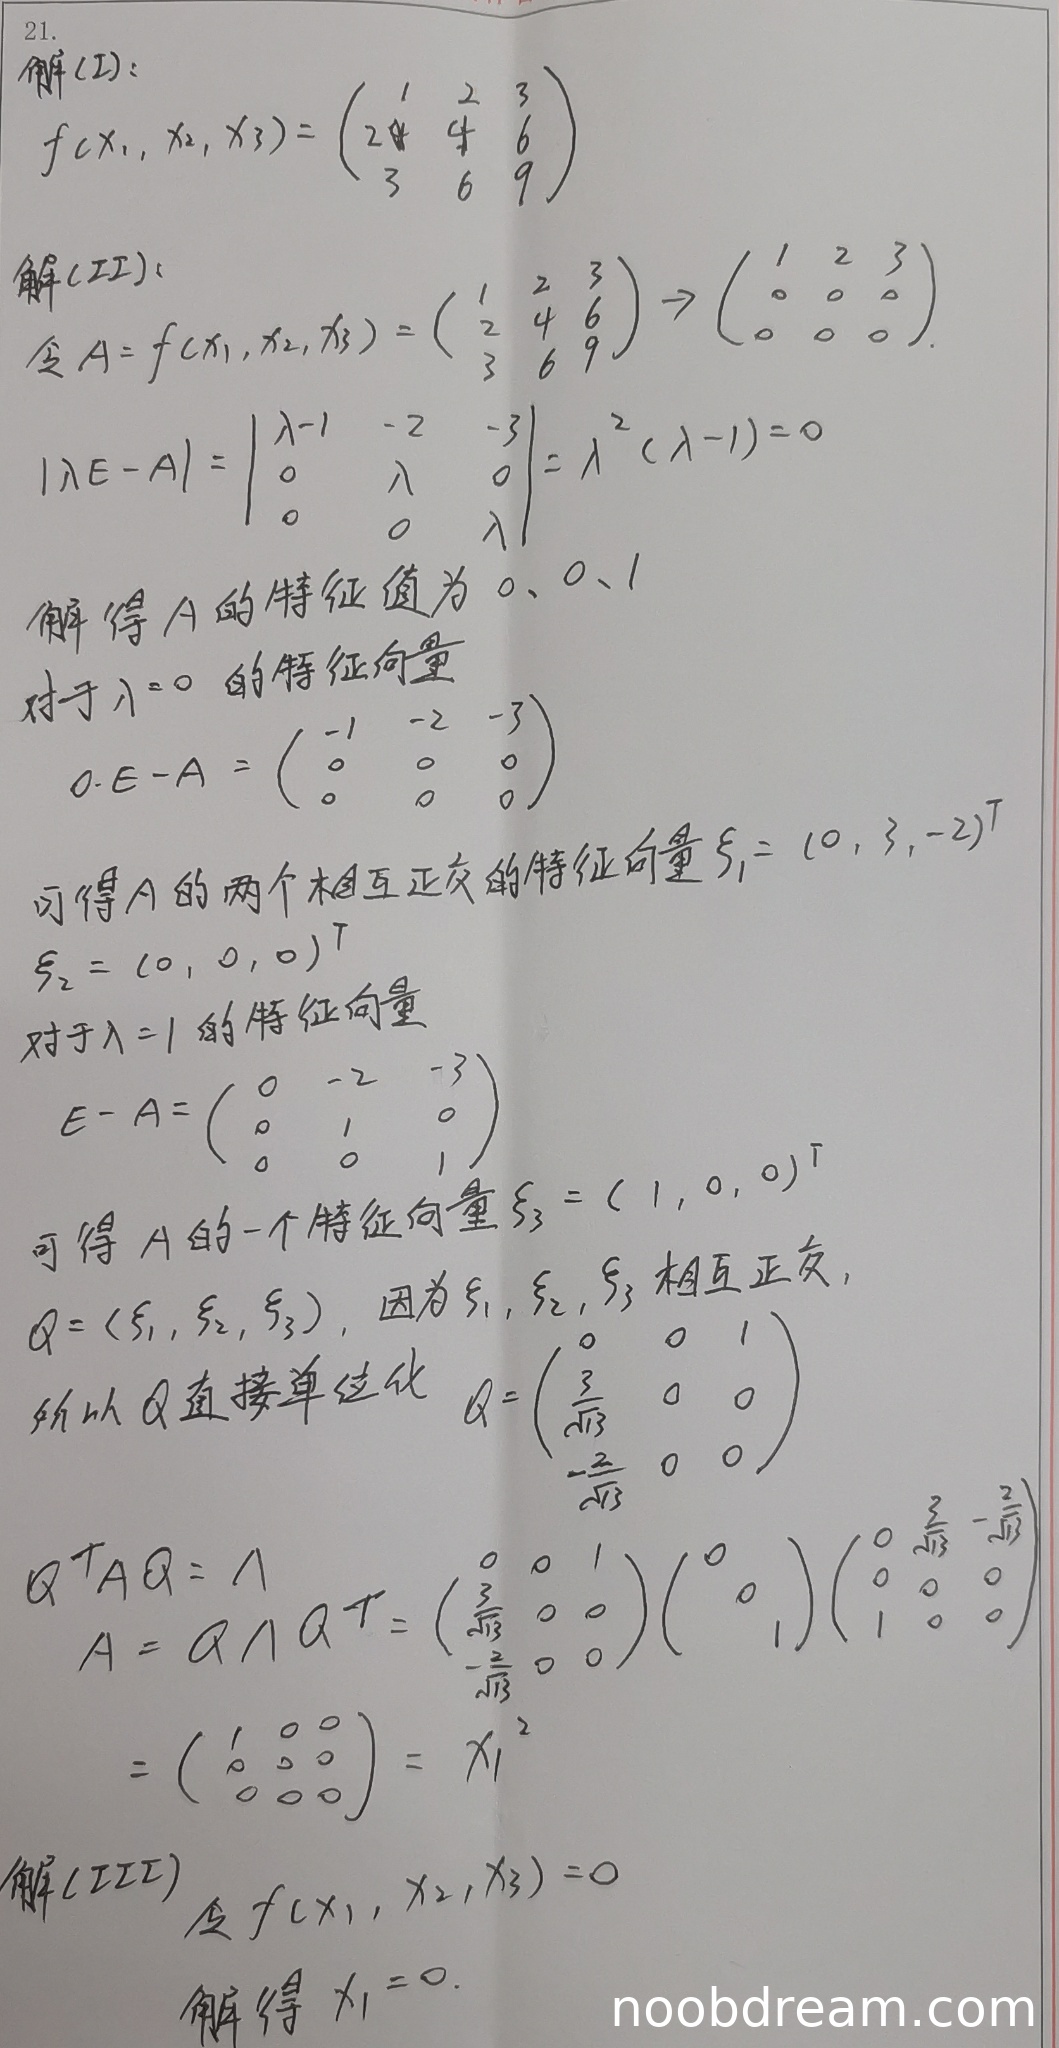 21.
解(I):
f(x₁, x₂, x₃) = ( 1 2 3
2 4 6
3 6 9 )
解(II):
令 A = f(x₁, x₂, x₃) = ( 1 2 3
2 4 6
3 6 9 ) → ( 1 2 3
0 0 0
0 0 0 ).
|λE-A| = | λ-1 -2 -3
0 λ 0
0 0 λ | = λ²(λ-1) = 0
解得 A 的特征值为 0、0、1
对于 λ=0 的特征向量
0·E-A = ( -1 -2 -3
0 0 0
0 0 0 )
可得A的两个相互正交的特征向量 ξ₁ = (0, 3, -2)ᵀ
ξ₂ = (0, 0, 0)ᵀ
对于 λ=1 的特征向量
E-A = ( 0 -2 -3
0 1 0
0 0 1 )
可得 A 的一个特征向量 ξ₃ = (1, 0, 0)ᵀ
Q = (ξ₁, ξ₂, ξ₃), 因为 ξ₁, ξ₂, ξ₃ 相互正交,
所以 Q 直接单位化 Q = ( 0 0 1
3/√13 0 0
-2/√13 0 0 )
QᵀAQ = Λ
A = QΛQᵀ = ( 0 0 1
3/√13 0 0
-2/√13 0 0 ) ( 0
0
1 ) ( 0 3/√13 -2/√13
0 0 0
1 0 0 )
= ( 1 0 0
0 0 0
0 0 0 ) = x₁²
解(III)
令 f(x₁, x₂, x₃) = 0
解得 x₁ = 0.
noobdream.com